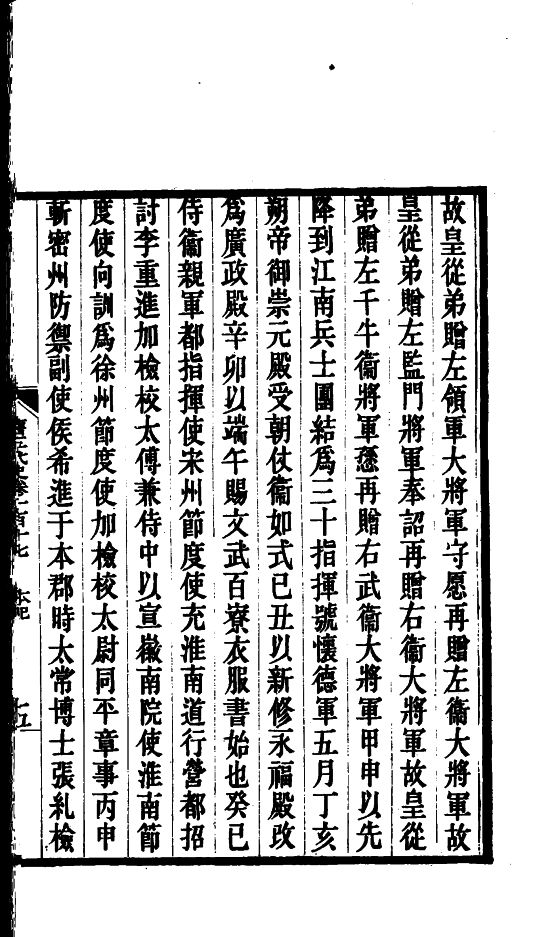 故皇從弟贈左領軍大將軍守愿再贈左衞大將軍故
皇從弟贈左監門將軍奉詔再贈右衞大將軍故皇從
弟贈左千牛衞將軍愻再贈右武衞大將軍甲申以先
降到江南兵士團結爲三十指揮號懷德軍五月丁亥
朔帝御崇元殿受朝仗衞如式己丑以新修永福殿改
爲廣政殿辛卯以端午賜文武百寮衣服書始也癸巳
侍衞親軍都指揮使宋州節度使充淮南道行營都招
討李重進加檢校太傅兼侍中以宣徽南院使淮南節
度使向訓爲徐州節度使加檢校太尉同平章事丙申
斬密州防禦副使侯希進于本郡時太常博士張糺檢